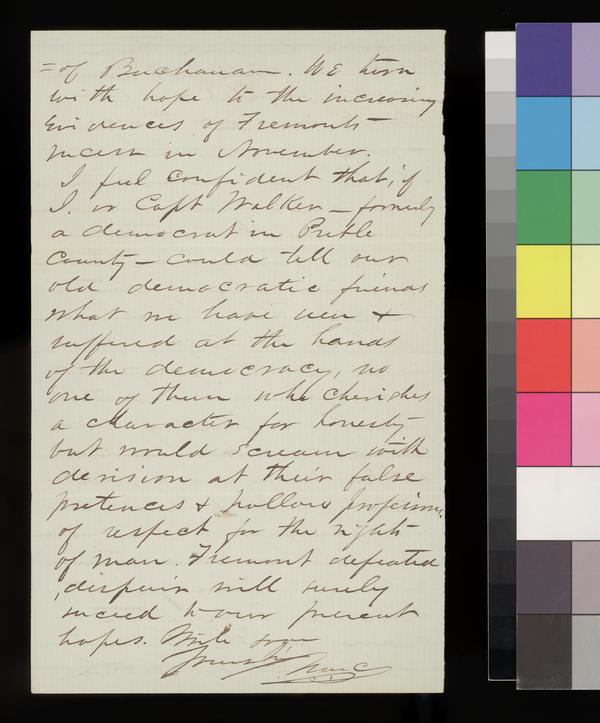 =of Buchanan. We turn
with hope to the increasing
Evidences of Fremonts
success in November.
I feel confident that, if
I. or Capt Walker – formerly
a democrat in Preble
County – could tell our
old democratic friends
what we have seen &
suffered at the hands
of the democracy, no
one of them who cherishes
a character for honesty
but would scream with
derision at their false
pretences & hollow professions
of respect for the rights
of man. Fremont defeated
, dispair will surely
succeed to our present
hopes. Write soon
Yours &c